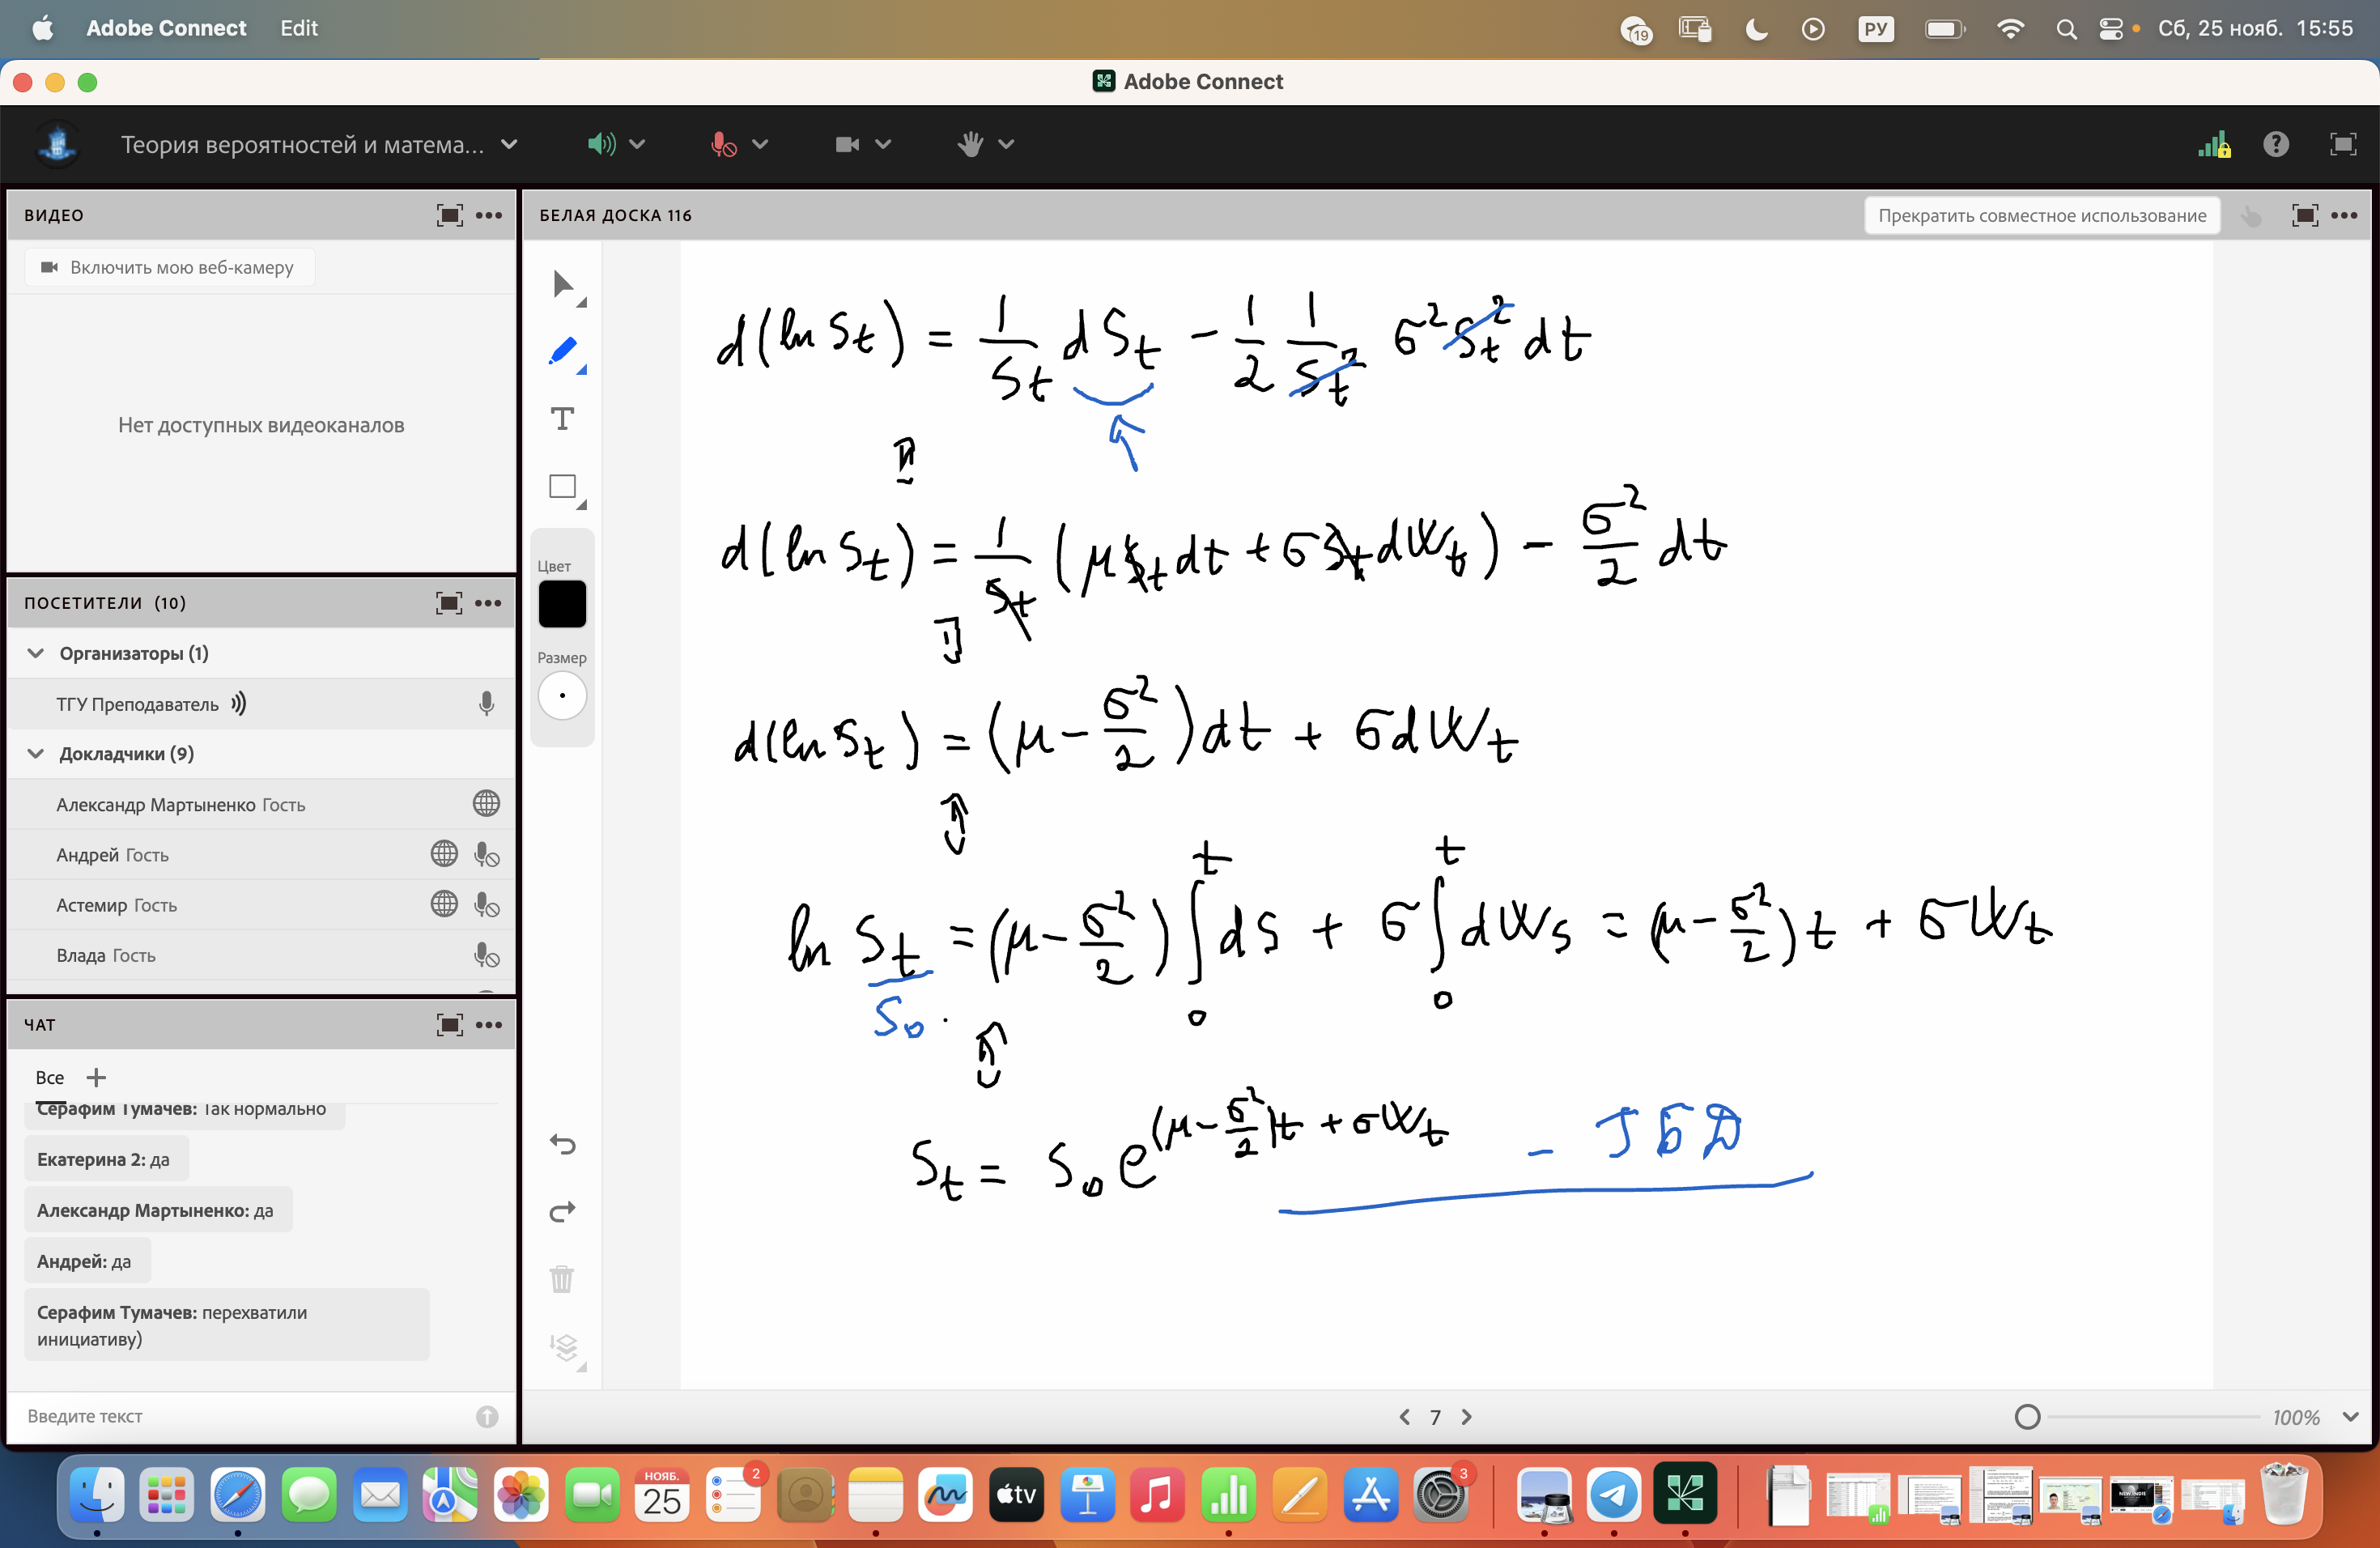 Adobe Connect Edit 19 РУ Сб, 25 нояб. 15:55
Adobe Connect
Теория вероятностей и матема...
ВИДЕО
Включить мою веб-камеру
Нет доступных видеоканалов
ПОСЕТИТЕЛИ (10)
Организаторы (1)
ТГУ Преподаватель
Докладчики (9)
Александр Мартыненко Гость
Андрей Гость
Астемир Гость
Влада Гость
ЧАТ
Все
Серафим Тумачев: Так нормально
Екатерина 2: да
Александр Мартыненко: да
Андрей: да
Серафим Тумачев: перехватили
инициативу)
Введите текст
БЕЛАЯ ДОСКА 116 Прекратить совместное использование
T
Цвет
Размер
d(ln S_t) = 1/S_t dS_t − 1/2 1/S_t² σ² S_t² dt
d(ln S_t) = 1/S_t (μS_t dt + σS_t dW_t) − σ²/2 dt
d(ln S_t) = (μ − σ²/2)dt + σdW_t
ln S_t/S_0 = (μ − σ²/2) ∫_0^t ds + σ ∫_0^t dW_s = (μ − σ²/2)t + σW_t
S_t = S_0 e^((μ − σ²/2)t + σW_t) – ГБД
7
100%
НОЯБ.
25
2
tv
3